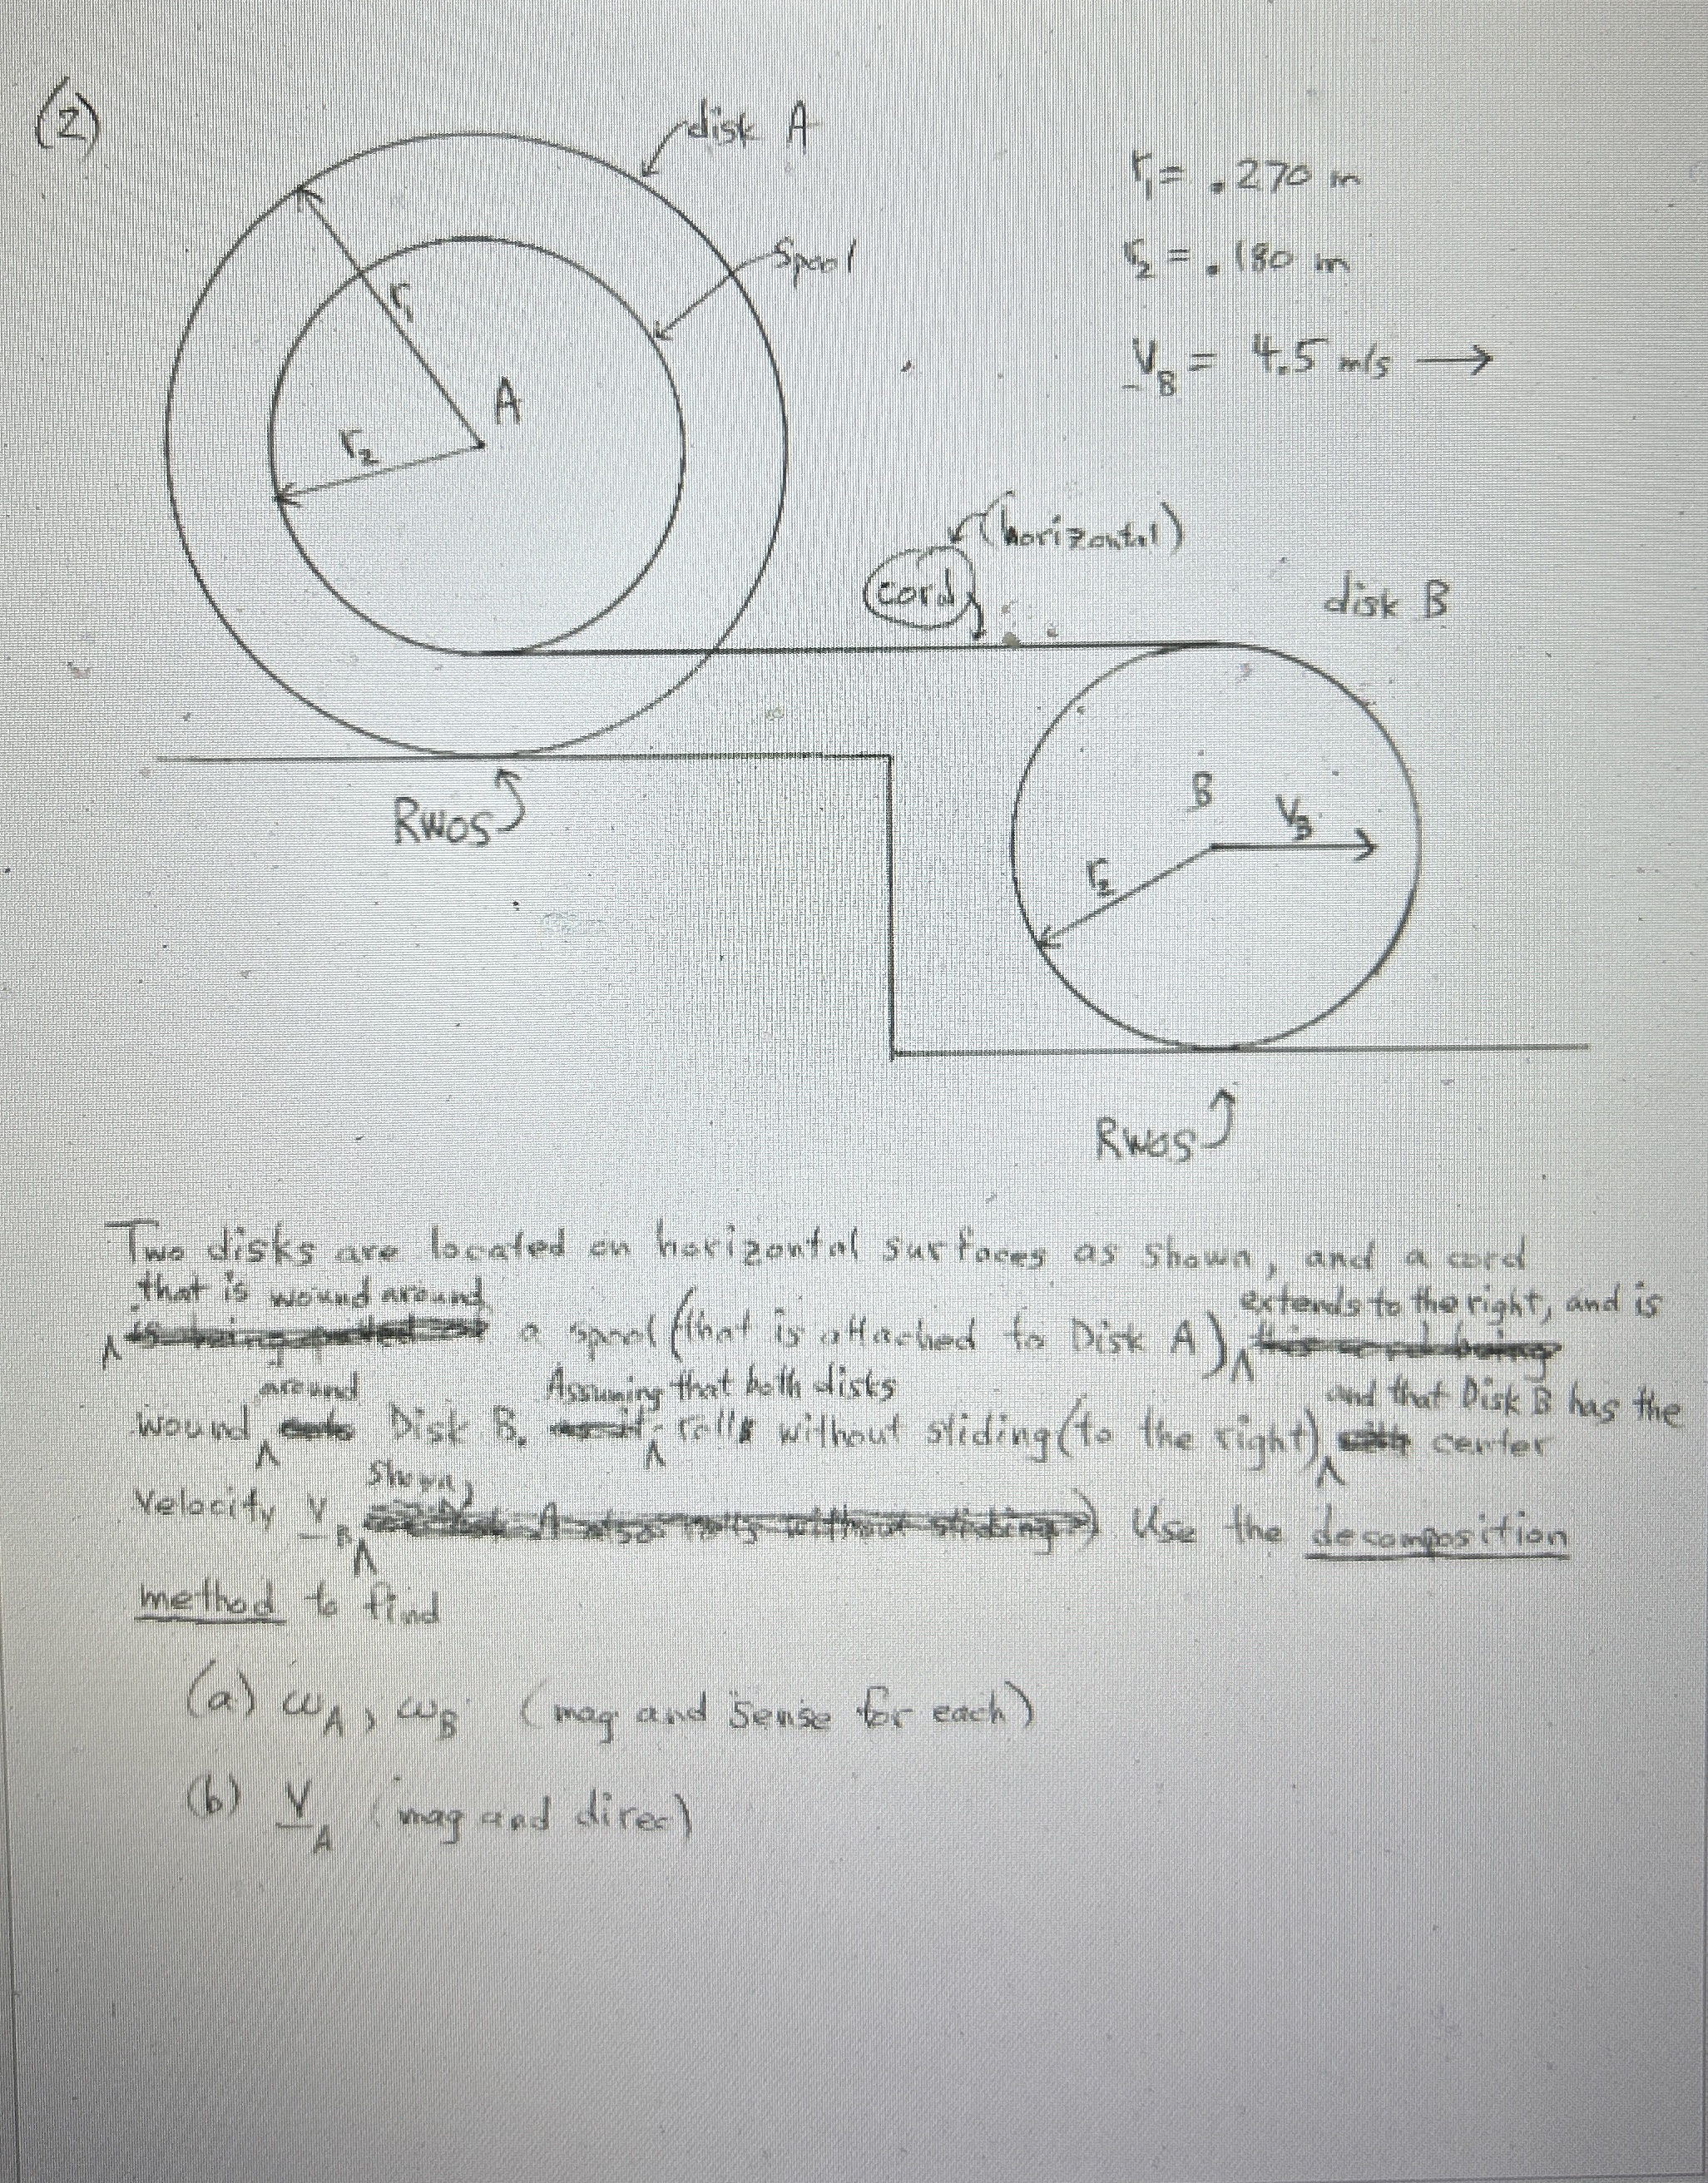 (2)
disk A
r₁ = .270 m
Spool
r₂ = .180 m
r₁
V_B = 4.5 m/s →
A
r₂
(horizontal)
cord
disk B
B
V_B
RWOS
r₂
RWOS
Two disks are located on horizontal surfaces as shown, and a cord
that is wound around a spool (that is attached to Disk A) extends to the right, and is
wound around Disk B. Assuming that both disks roll without sliding (to the right) and that Disk B has the center
velocity V_B shown, Use the decomposition
method to find
(a) ω_A, ω_B (mag and sense for each)
(b) V_A (mag and direc)